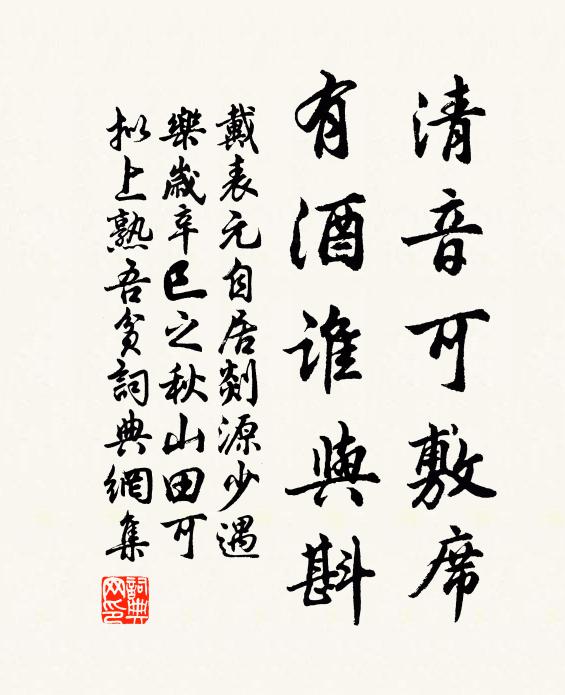 清音可敷席
有酒誰與斟
戴表元自居剡源少遇
樂歲辛巳之秋山田可
擬上熟吾貧詞典網集
詞典網印